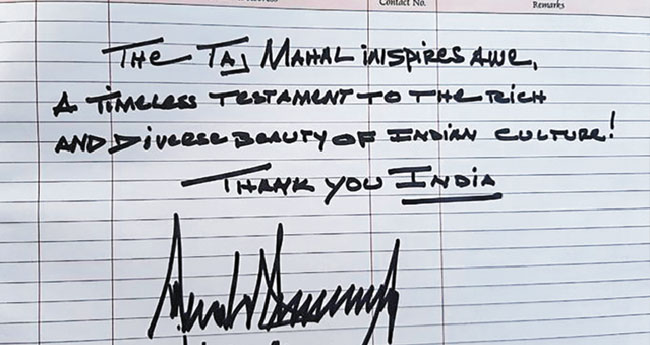 Contact No.
Remarks
THE TAJ MAHAL INSPIRES AWE,
A TIMELESS TESTAMENT TO THE RICH
AND DIVERSE BEAUTY OF INDIAN CULTURE!
THANK YOU INDIA